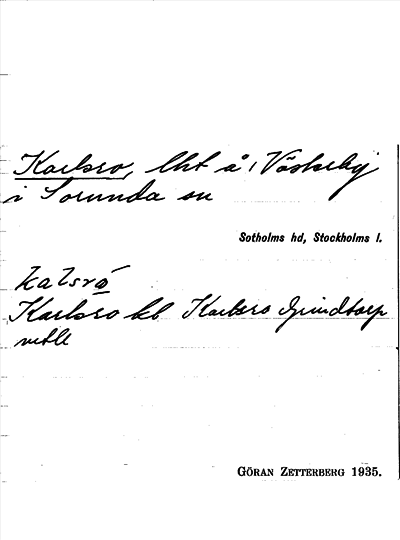 Karlsro, lht å 1 Västerby
i Sorunda sn
Sotholms hd, Stockholms l.
kalsró
Karlsro kb Karlsro Grindtorp
GÖRAN ZETTERBERG 1935.